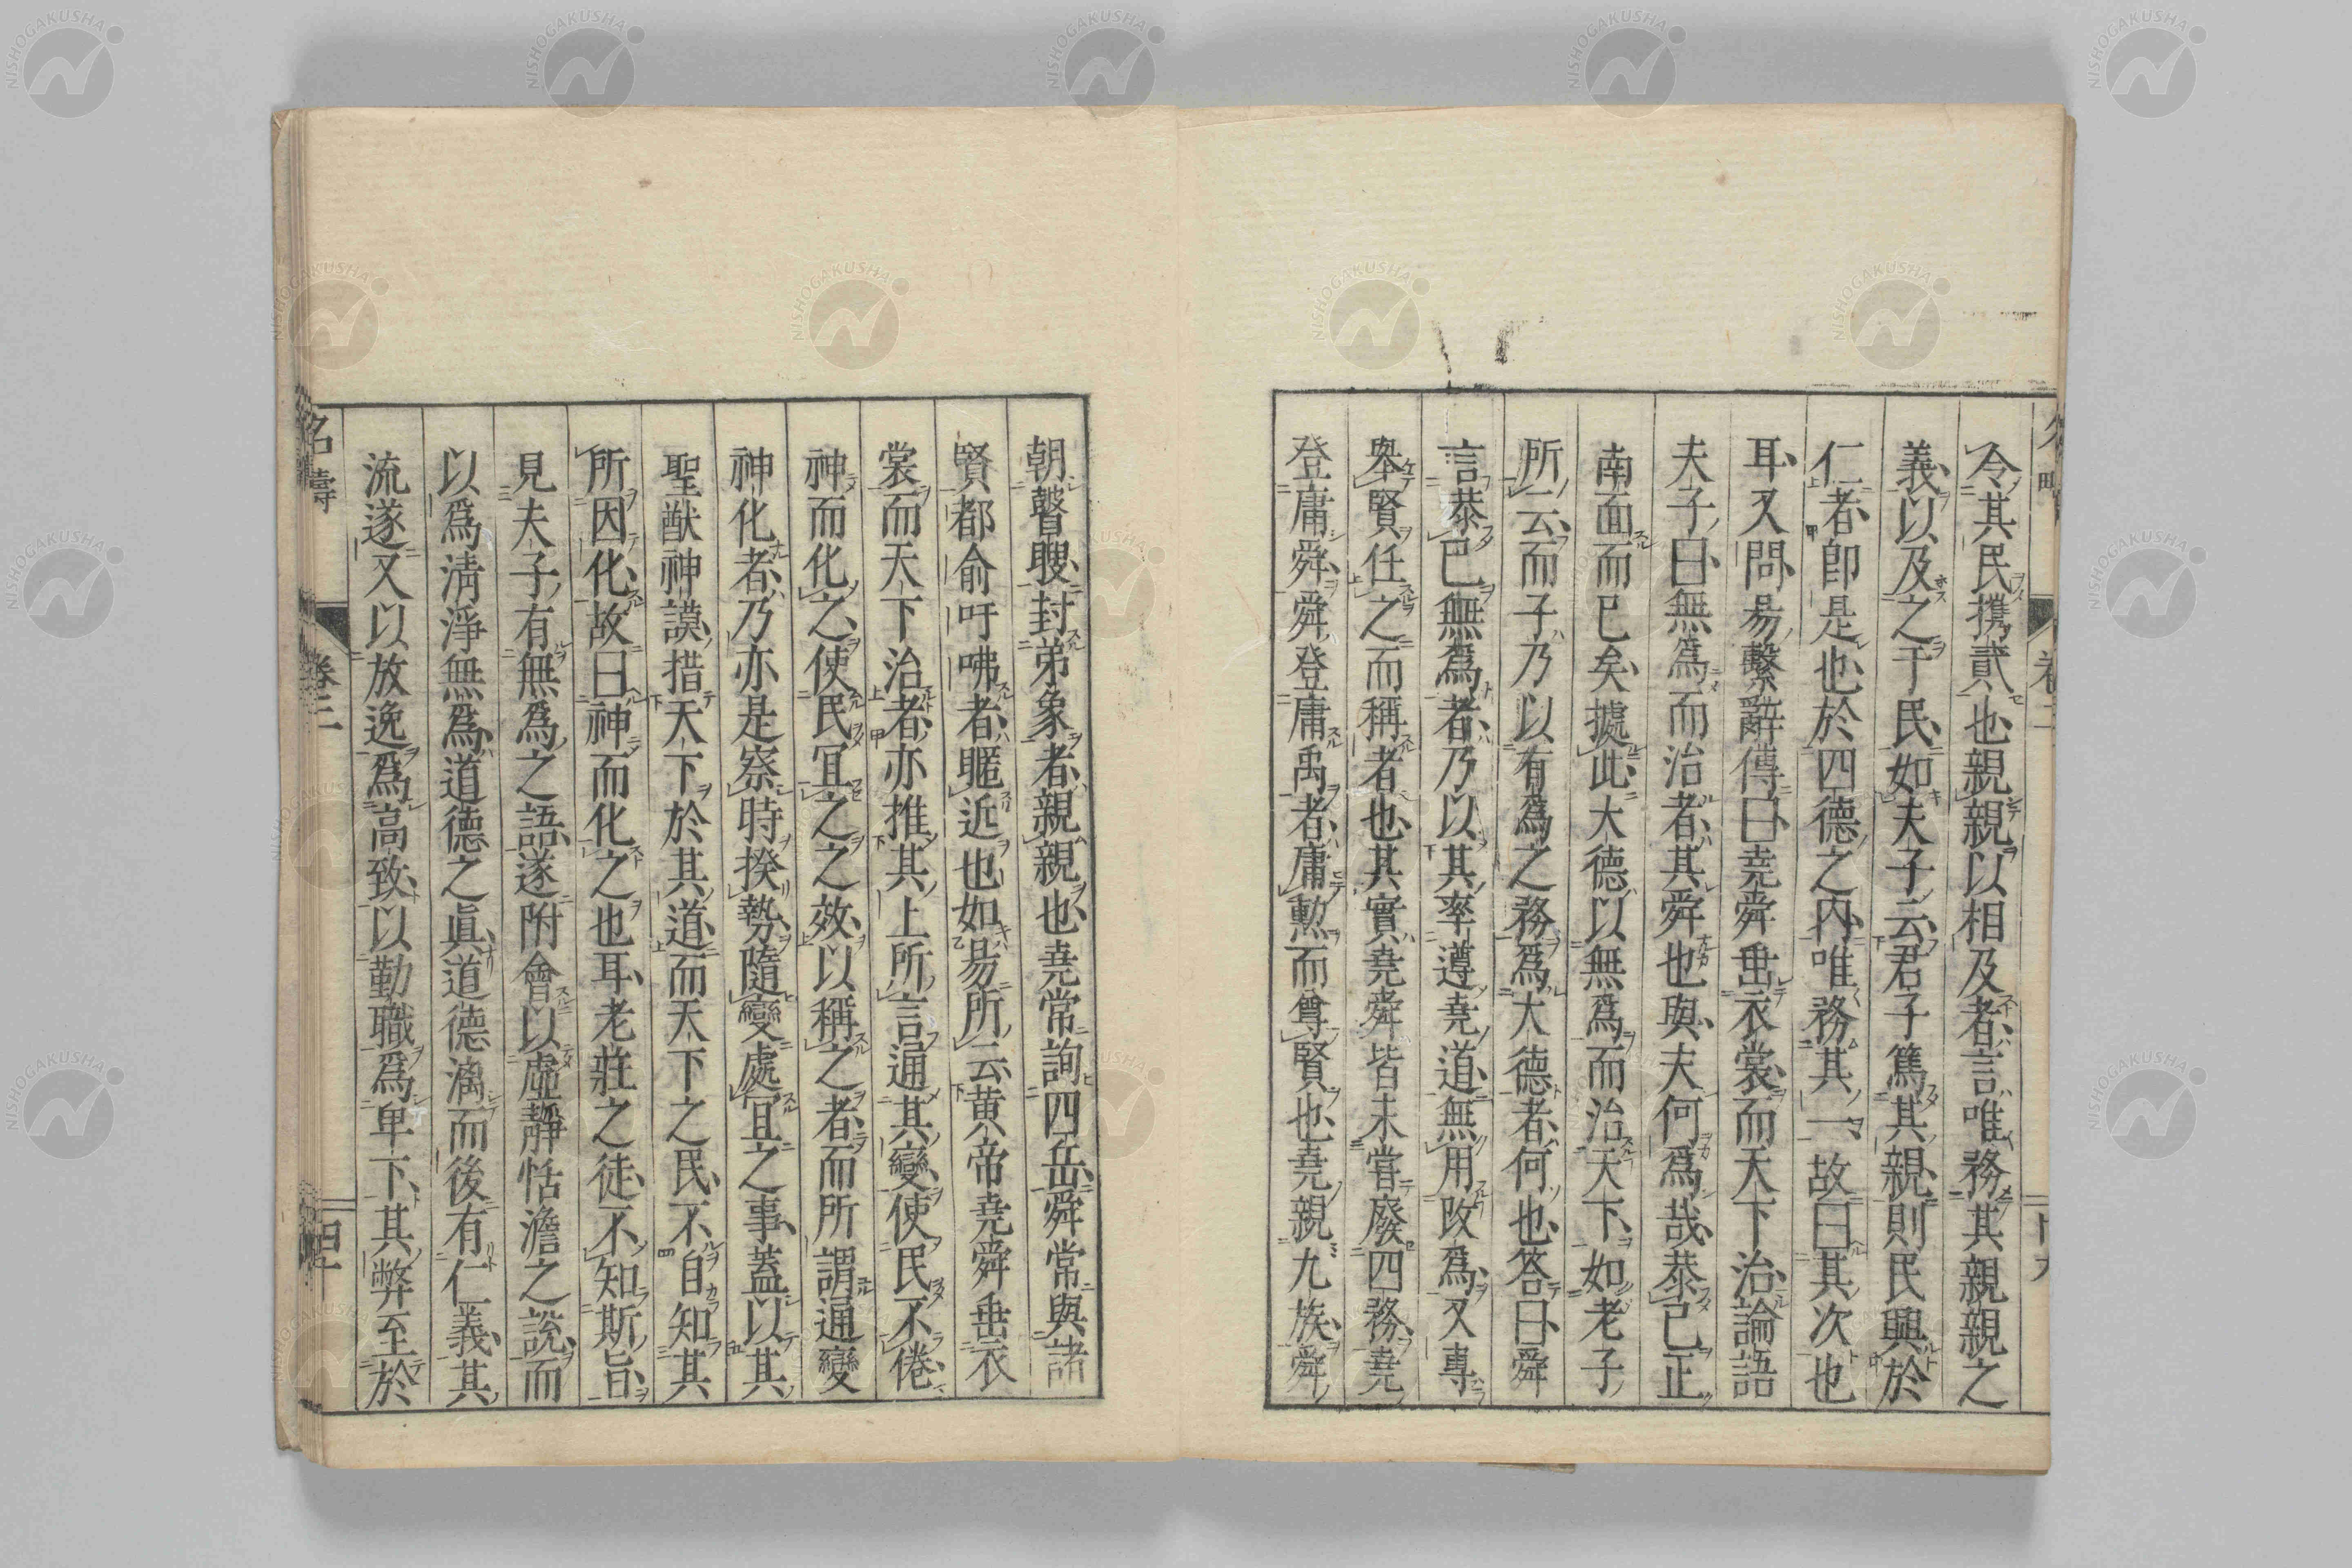 令其民攜貳也親親以相及者言唯務其親親之
義以及之于民如夫子云君子篤其親則民興於
仁者卽是也於四德之內唯務其一故曰其次也
耳又問易繫辭傳曰堯舜垂衣裳而天下治論語
夫子曰無爲而治者其舜也與夫何爲哉恭己正
南面而已矣據此大德以無爲而治天下如老子
所云而子乃以有爲之務爲大德者何也答曰舜
言恭己無爲者乃以其率遵堯道無用改爲又專
擧賢任之而稱者也其實堯舜皆未嘗廢四務堯
登庸舜舜登庸禹者庸勲而尊賢也堯親九族舜
朝瞽瞍封弟象者親親也堯常詢四岳舜常與諸
賢都俞吁咈者暱近也如易所云黃帝堯舜垂衣
裳而天下治者亦推其上所言通其變使民不倦
神而化之使民冝之之效以稱之者而所謂通變
神化者乃亦是察時揆勢隨變處冝之事蓋以其
聖猷神謨措天下於其道而天下之民不自知其
所因化故曰神而化之也耳老莊之徒不知斯旨
見夫子有無爲之語遂附會以虛靜恬澹之說而
以爲淸淨無爲道德之眞道德漓而後有仁義其
流遂又以放逸爲高致以勤職爲卑下其弊至於
名疇
卷三
NISHOGAKUSHA